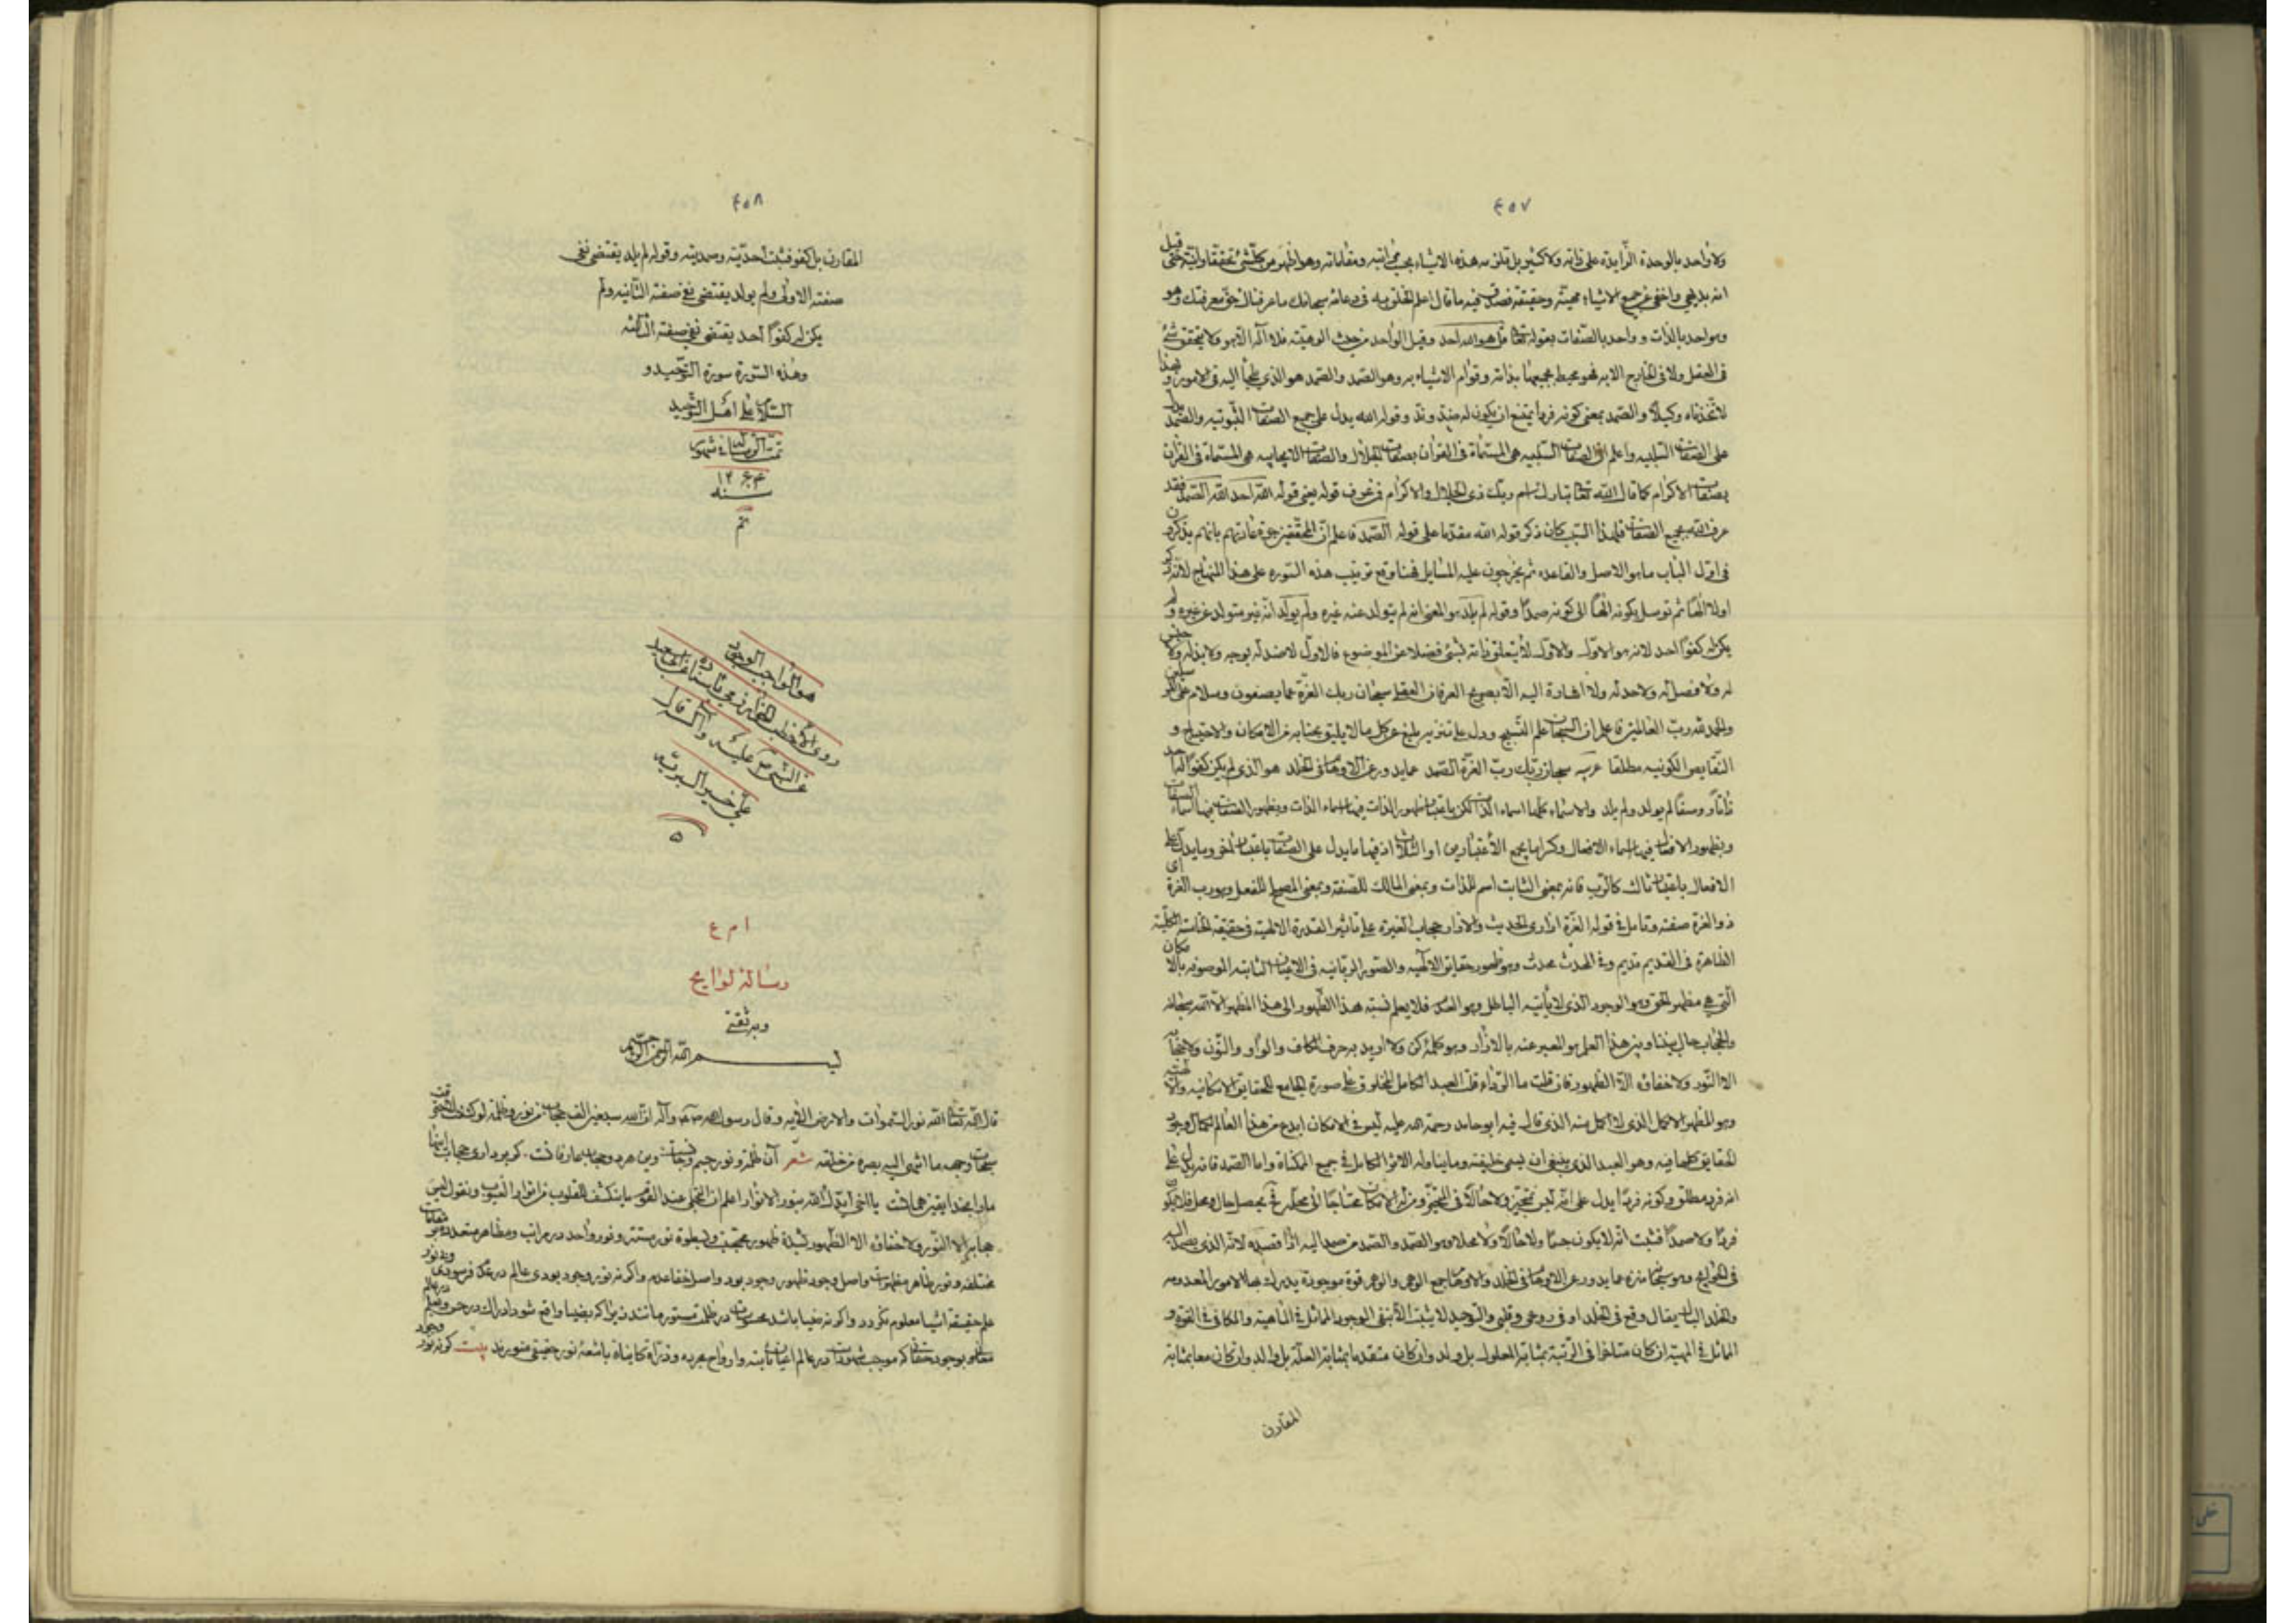 ٤٥٧
ولا واحد بالوحدة الزايدة على ذاته ولا كثير بل تلزمه هذه الاشياء بحسب مراتبه ومقاماته وهو اظهر من كل شئ تحققا وانية حتى قيل
انه بديهي واخفى من جميع الاشياء مهية وحقيقة فصدق فيه ما قال اعلم الخلق به في دعائه سبحانك ما عرفناك حق معرفتك وهو
وهو واحد بالذات و واحد بالصفات بقوله تعا قل هو الله احد وقيل الواحد من حيث الوهيته فلا اله الا هو ولا يتحقق شئ
في العقل ولا في الخارج الا به فهو محيط بجميعها بذاته وقوام الاشياء به وهو الصمد والصمد هو الذي يلجأ اليه في الامور و بهذا
لاتخذناه وكيلا والصمد بمعنى كونه فردا يمتنع ان يكون له ضد وند وقوله الله يدل على جميع الصفات الثبوتيه والصمد يدل
على الصفات السلبيه واعلم ان الصفات السلبيه هي المسماة في القرآن بصفات الجلال والصفات الايجابيه هي المسماة في القرآن
بصفات الاكرام كما قال الله تعا تبارك اسم ربك ذى الجلال والاكرام فمن عرف قوله يعني قوله الله احد الله الصمد فقد
عرف الله بجميع الصفات فلهذا السبب كان ذكر قوله الله مقدما على قوله الصمد فاعلم ان المحققين جرت عادتهم بانهم يذكرون
في اول الباب ما هو الاصل والقاعده ثم يخرجون عليه المسايل فهنا وقع ترتيب هذه السوره على هذا المنهاج لانه ذكر
اولا الها ثم توسل بكونه الها الى كونه صمدا وقوله لم يلد هو المعنى انه لم يتولد عنه غيره ولم يولد انه غير متولد عن غيره ولم
يكن له كفوا احد لانه هو الاول والاول لا يتعلق ذاته بشئ فضلا عن الموضوع فالاول لا ضد له بوجه ولا ند له ولا جنس
له ولا فصل له ولا حد له ولا اشارة اليه الا بصريح العرفان العقلى سبحان ربك رب العزة عما يصفون وسلام على المرسلين
والحمد لله رب العالمين فاعلم ان السبحان علم التسبيح ودل على تنزيه بليغ عن كل ما لا يليق بجنابه من الامكان والاحتياج و
النقايص الكونيه مطلقا عريه سبحان ربك رب العزة الصمد عما يدور عن الاوهام في الخلد هو الذى لم يكن كفوا له احد
ذاتا ووصفا لم يولد ولم يلد والاسماء كلها اسماء الذات لكن باعتبار ظهور الذات فيها اسماء الذات وبظهور الصفات فيها اسماء الصفات
وبظهور الافعال فيها اسماء الافعال وكرر ما يجمع الاعتبارين او الثلاث اذ فيها ما يدل على الصفات باعتبار اخر وما يدل على
الافعال باعتبار ثالث كالرب فانه بمعنى الثابت اسم للذات وبمعنى المالك للصفة وبمعنى المصلح للفعل وهو رب العزة اى
ذو العزة صفته وتامل في قوله العزة ازارى الحديث والازار حجاب الغيره على تاثير القدرة الالهية في حقيقة الخاسته الكلية
الظاهرة في القديم قديم وفي المحدث محدث وهو ظهور حقايق الالهيه والصور الربانيه في الاعيان الثابته الموصوفه بالامكان
التي هي مظهر الحق وهو الوجود الذى لا يأتيه الباطل وهو العدم فلا يعلم نسبة هذا الظهور الى هذا المظهر الا الله سبحانه
والحجاب حال بيننا وبين هذا العلم هو المعبر عنه بالازار وهو كلمة كن ولا اريد به حرف الكاف والواو والنون ولا حجاب
الا النور ولا خفاء الا الظهور فان قلت ما الرداء قلت العبد الكامل المخلوق على صورة الجامع للحقايق الامكانيه والالهيه
وهو المظهر الاكمل الذى لا اكمل منه الذى قال فيه ابو حامد رحمة الله عليه ليس في الامكان ابدع من هذا العالم لكمال وجود
الحقايق كلها فيه وهو العبد الذى ينبغى ان يسمى خليفة وما يناوله الاثر الكامل في جميع الممكناة واما الصمد فانه يدل على
انه فرد مطلق وكونه فردا يدل على انه ليس بمتحيز ولا حالا في المتحيز ومنزله الامكان محتاجا الى محله فح يحصل حال ومحل فلا يكون
فردا ولا صمدا فثبت انه لا يكون جسما ولا حالا ولا محلا وهو الصمد والصمد من صمد اليه اذا قصده لانه الذى يصمد اليه
في الحوايج وهو سبحانه منزه عما يدور عن الاوهام في الخلد والاوهام جمع الوهم والوهم قوة موجودة يدرك بها الامور المعدومه
والخلد البال يقال وقع في الخلد اى في روعى وقلبى والتوحيد لا يثبت الا بنفى الوجود المماثل في الماهية والمكافى في القوة و
المماثل في المهية ان كان متاخرا في الرتبة بمثابة المعلول بل ولد وان كان متقدما بمثابة العلة بل والد وان كان معا بمثابة
المقارن
٤٥٨
المقارن بل كفو فثبت احديته وصمديته وقوله لم يلد يقتضى نفى
صفته الاولى ولم يولد يقتضى نفى صفته الثانيه ولم
يكن له كفوا احد يقتضى نفى صفته الثالثه
وهذه السورة سورة التوحيد و
السلام على اهل التوحيد
تمت الرسالة في شهور
سنه ١٢٤٣
تم
هو الواجب الوجود
روى الاخطب الخوارزمي باسناده عن ابى سعيد
عن النبى صم عليه واله قال
على خير البريه
٥
ا م ع
رساله لوايح
وبه ثقتى
بسم الله الرحمن الرحيم
قال الله تعا الله نور السموات والارض الآيه وقال رسول الله صم وآله ان لله سبعين الف حجاب من نور وظلمة لو كشفها لاحترقت
سبحات وجهه ما انتهى اليه بصره من خلقه شعر آن ظلمة ونور جسم وجانست وين هر دو حجاب عارفانست. كر بردارى حجاب اينها
ماوا بخدا يقين همانست يا اخى ايدك الله بنور الانوار اعلم ان التجلى عند القوم ما ينكشف للقلوب من انوار الغيوب ونقول ليس
حجابه الا النور ولا خفاؤه الا الظهور لشدة ظهوره محتجب ولسطوة نوره مستتر ونور واحد در مراتب ومظاهر متعدده بمقامات
مختلفه ونور ظاهر مظهرات واصل وجود ظهور وجود بود واصل خفا عدم واكر نه نور وجود بودى عالم در عدم فرسودى وبى نور
علم حقيقة اشيا معلوم نكردد واكر نه ضيا باشد محسوسات در ظلمت مستور مانند زيرا كه بضيا واقع شود ادراك در حس وبعلم در عالم
معانى وبوجود حقانى كه موجب شهودات در عالم اعيان ثابته وارواح مجرده وذرات كاينات باشعهٔ نور حقيقى منورند بيت كر نه نور وجود